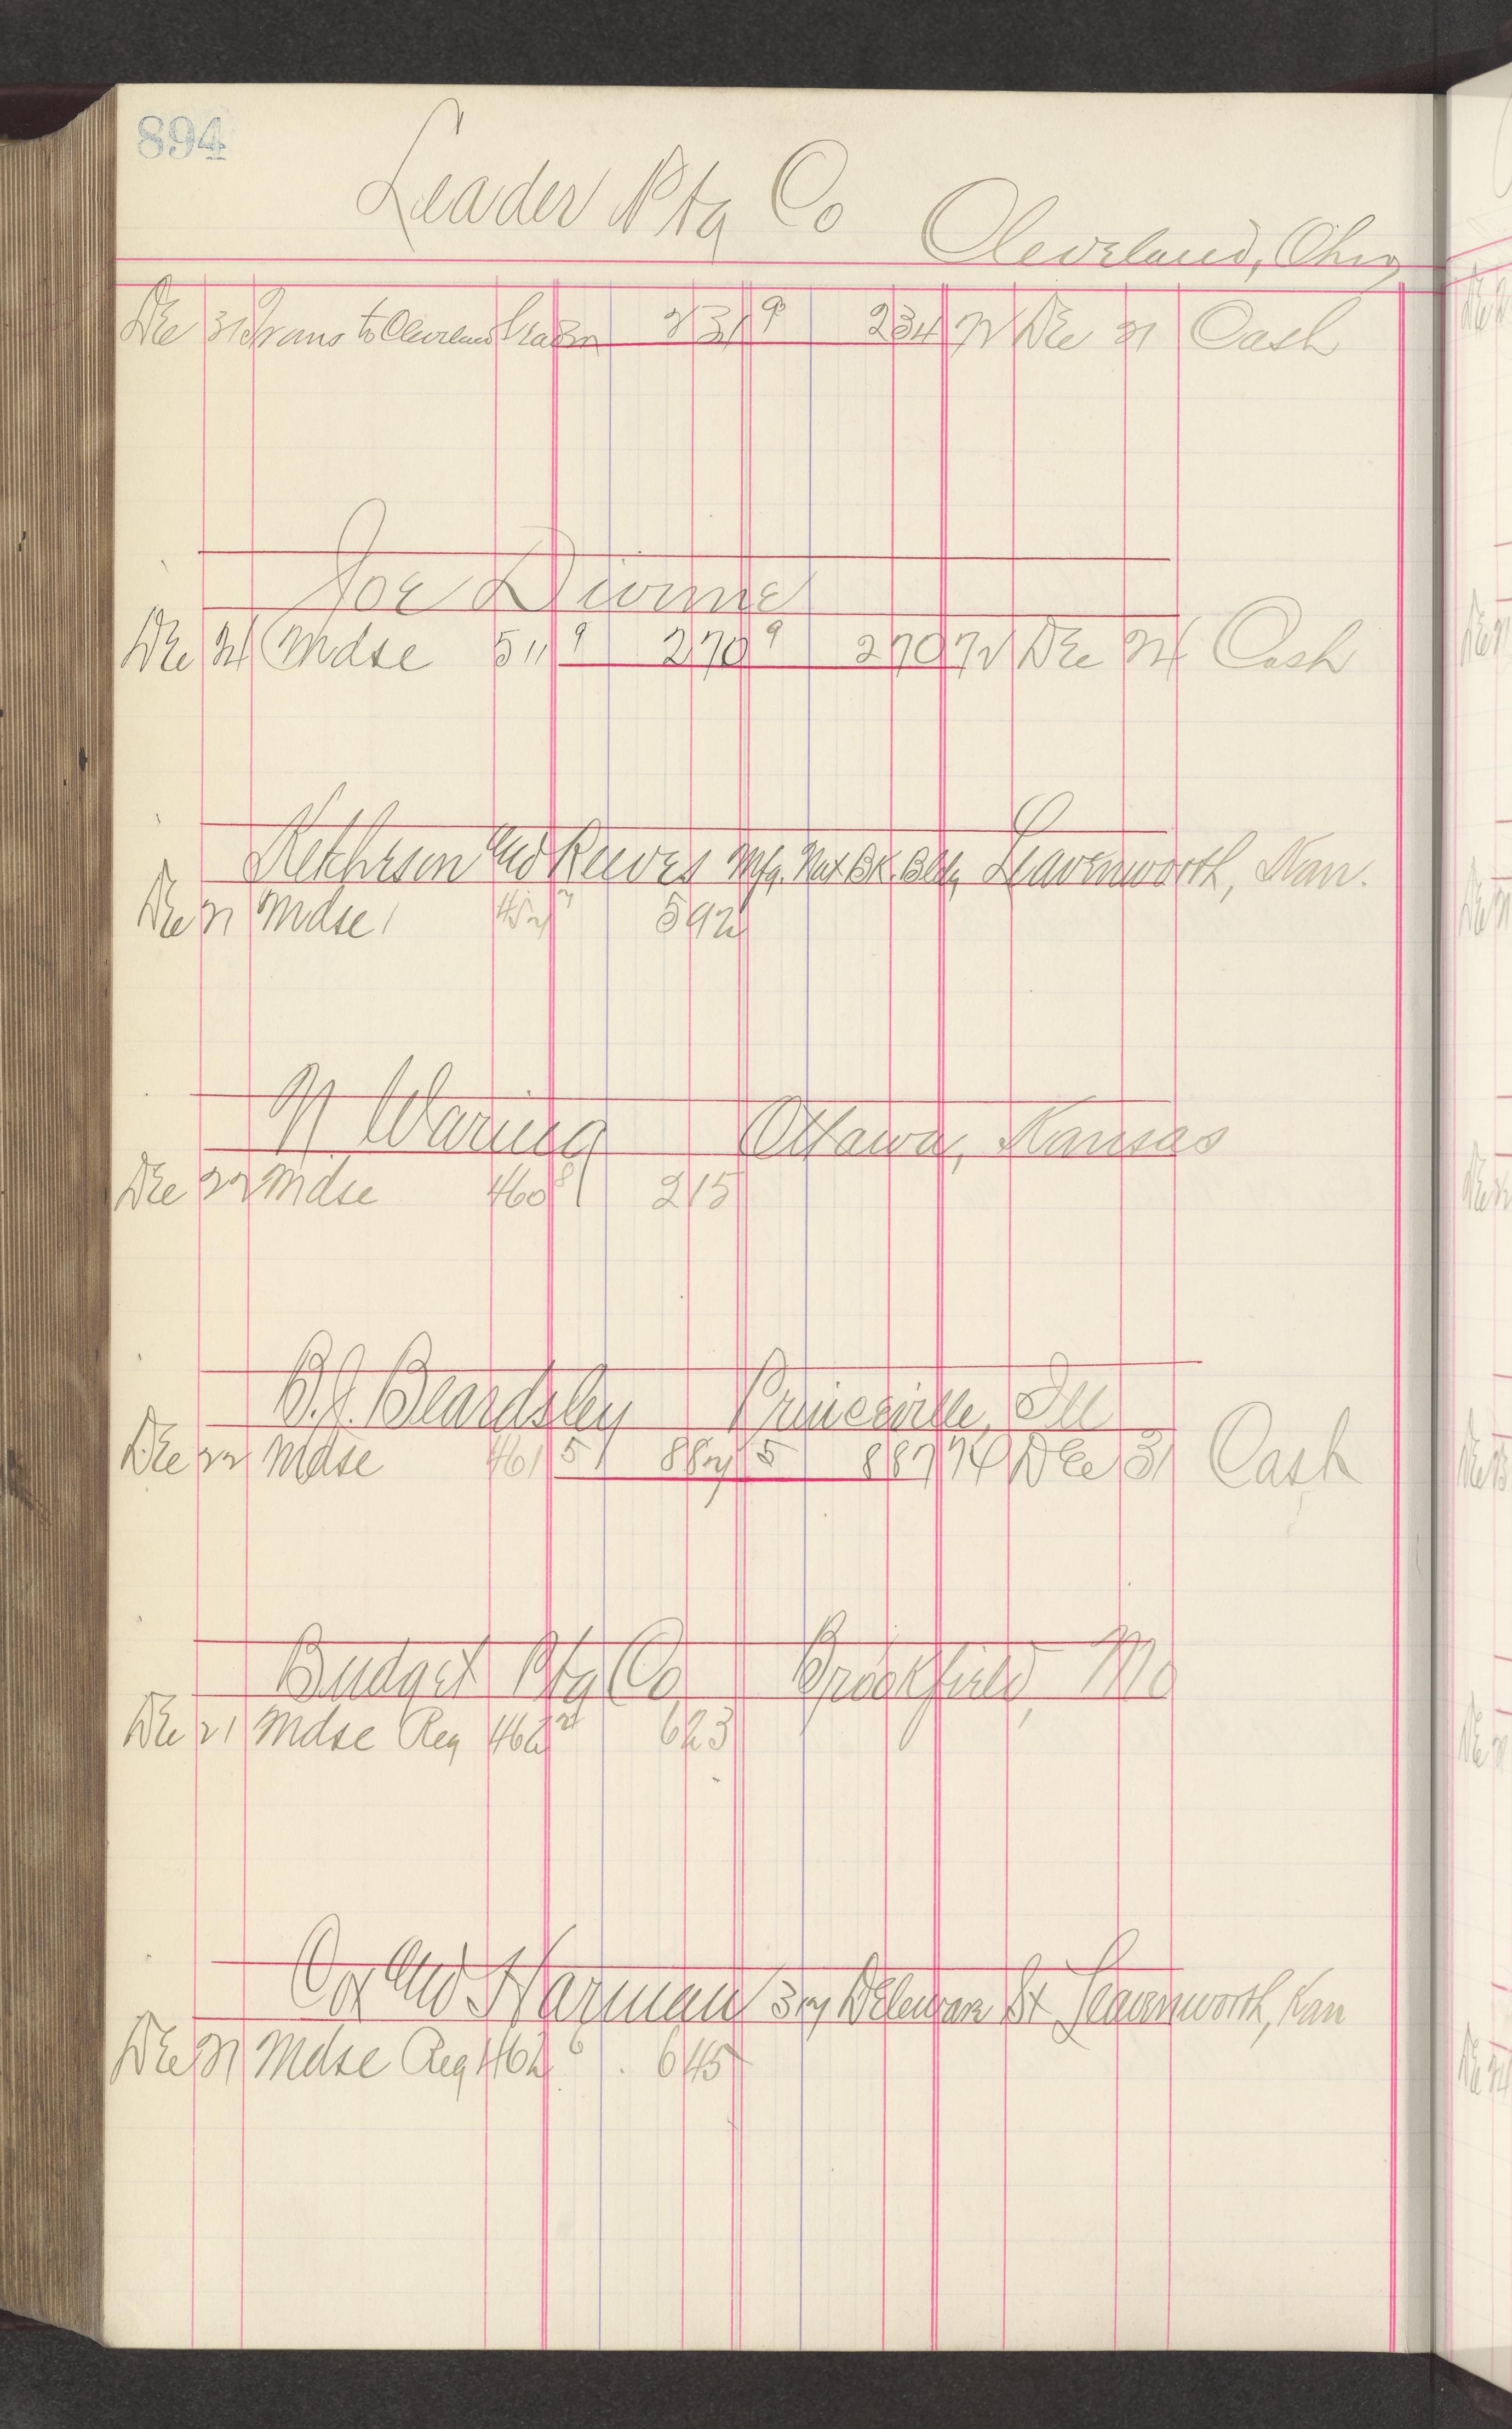 894
Leader Ptg Co Cleveland, Ohio
Dec 31 Trans to Cleveland 231 9 234 72 Dec 21 Cash
Joe Divine
Dec 24 Mdse 511 9 270 9 270 72 Dec 24 Cash
and Reeves Mfg. Nat Bk. Bldg Leavenworth, Kan.
Dec 21 Mdse 592
N Waring Ottawa, Kansas
Dec 22 Mdse 460 8 215
B.J. Beardsley Princeville, Ill
Dec 22 Mdse 461 5 887 5 887 74 Dec 31 Cash
Budget Ptg Co Brookfield, Mo
Dec 21 Mdse Reg 462 2 623
Cox and Harman 327 Delaware St Leavenworth, Kan
Dec 21 Mdse Reg 462 6 645